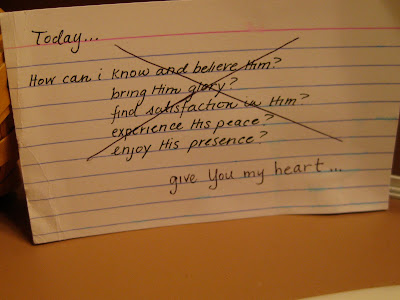 Today...
How can i know and believe Him?
bring Him glory?
find satisfaction in Him?
experience His peace?
enjoy His presence?
give You my heart...